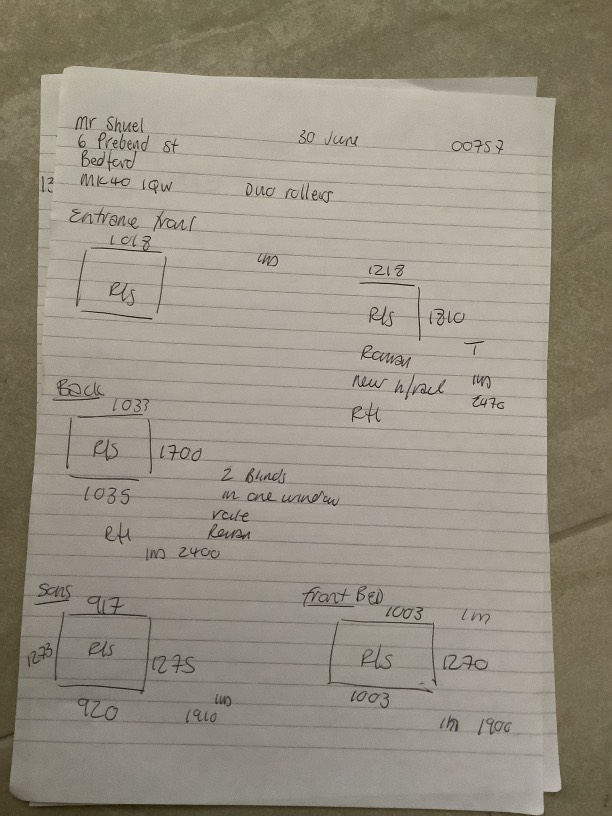 Mr Shuel
30 June
00757
6 Prebend St
Bedford
MK40 1QW
Duo rollers
13
Entrance front
1018
R/s
1218
R/s
1810
T
New h/rail
2470
RH
Back
1033
R/s
1700
1035
RH
2 Blinds
in one window
1m 2400
Sons
917
1273
R/s
1275
920
1910
front Bed
1003
1m
R/s
1270
1003
1m 1900